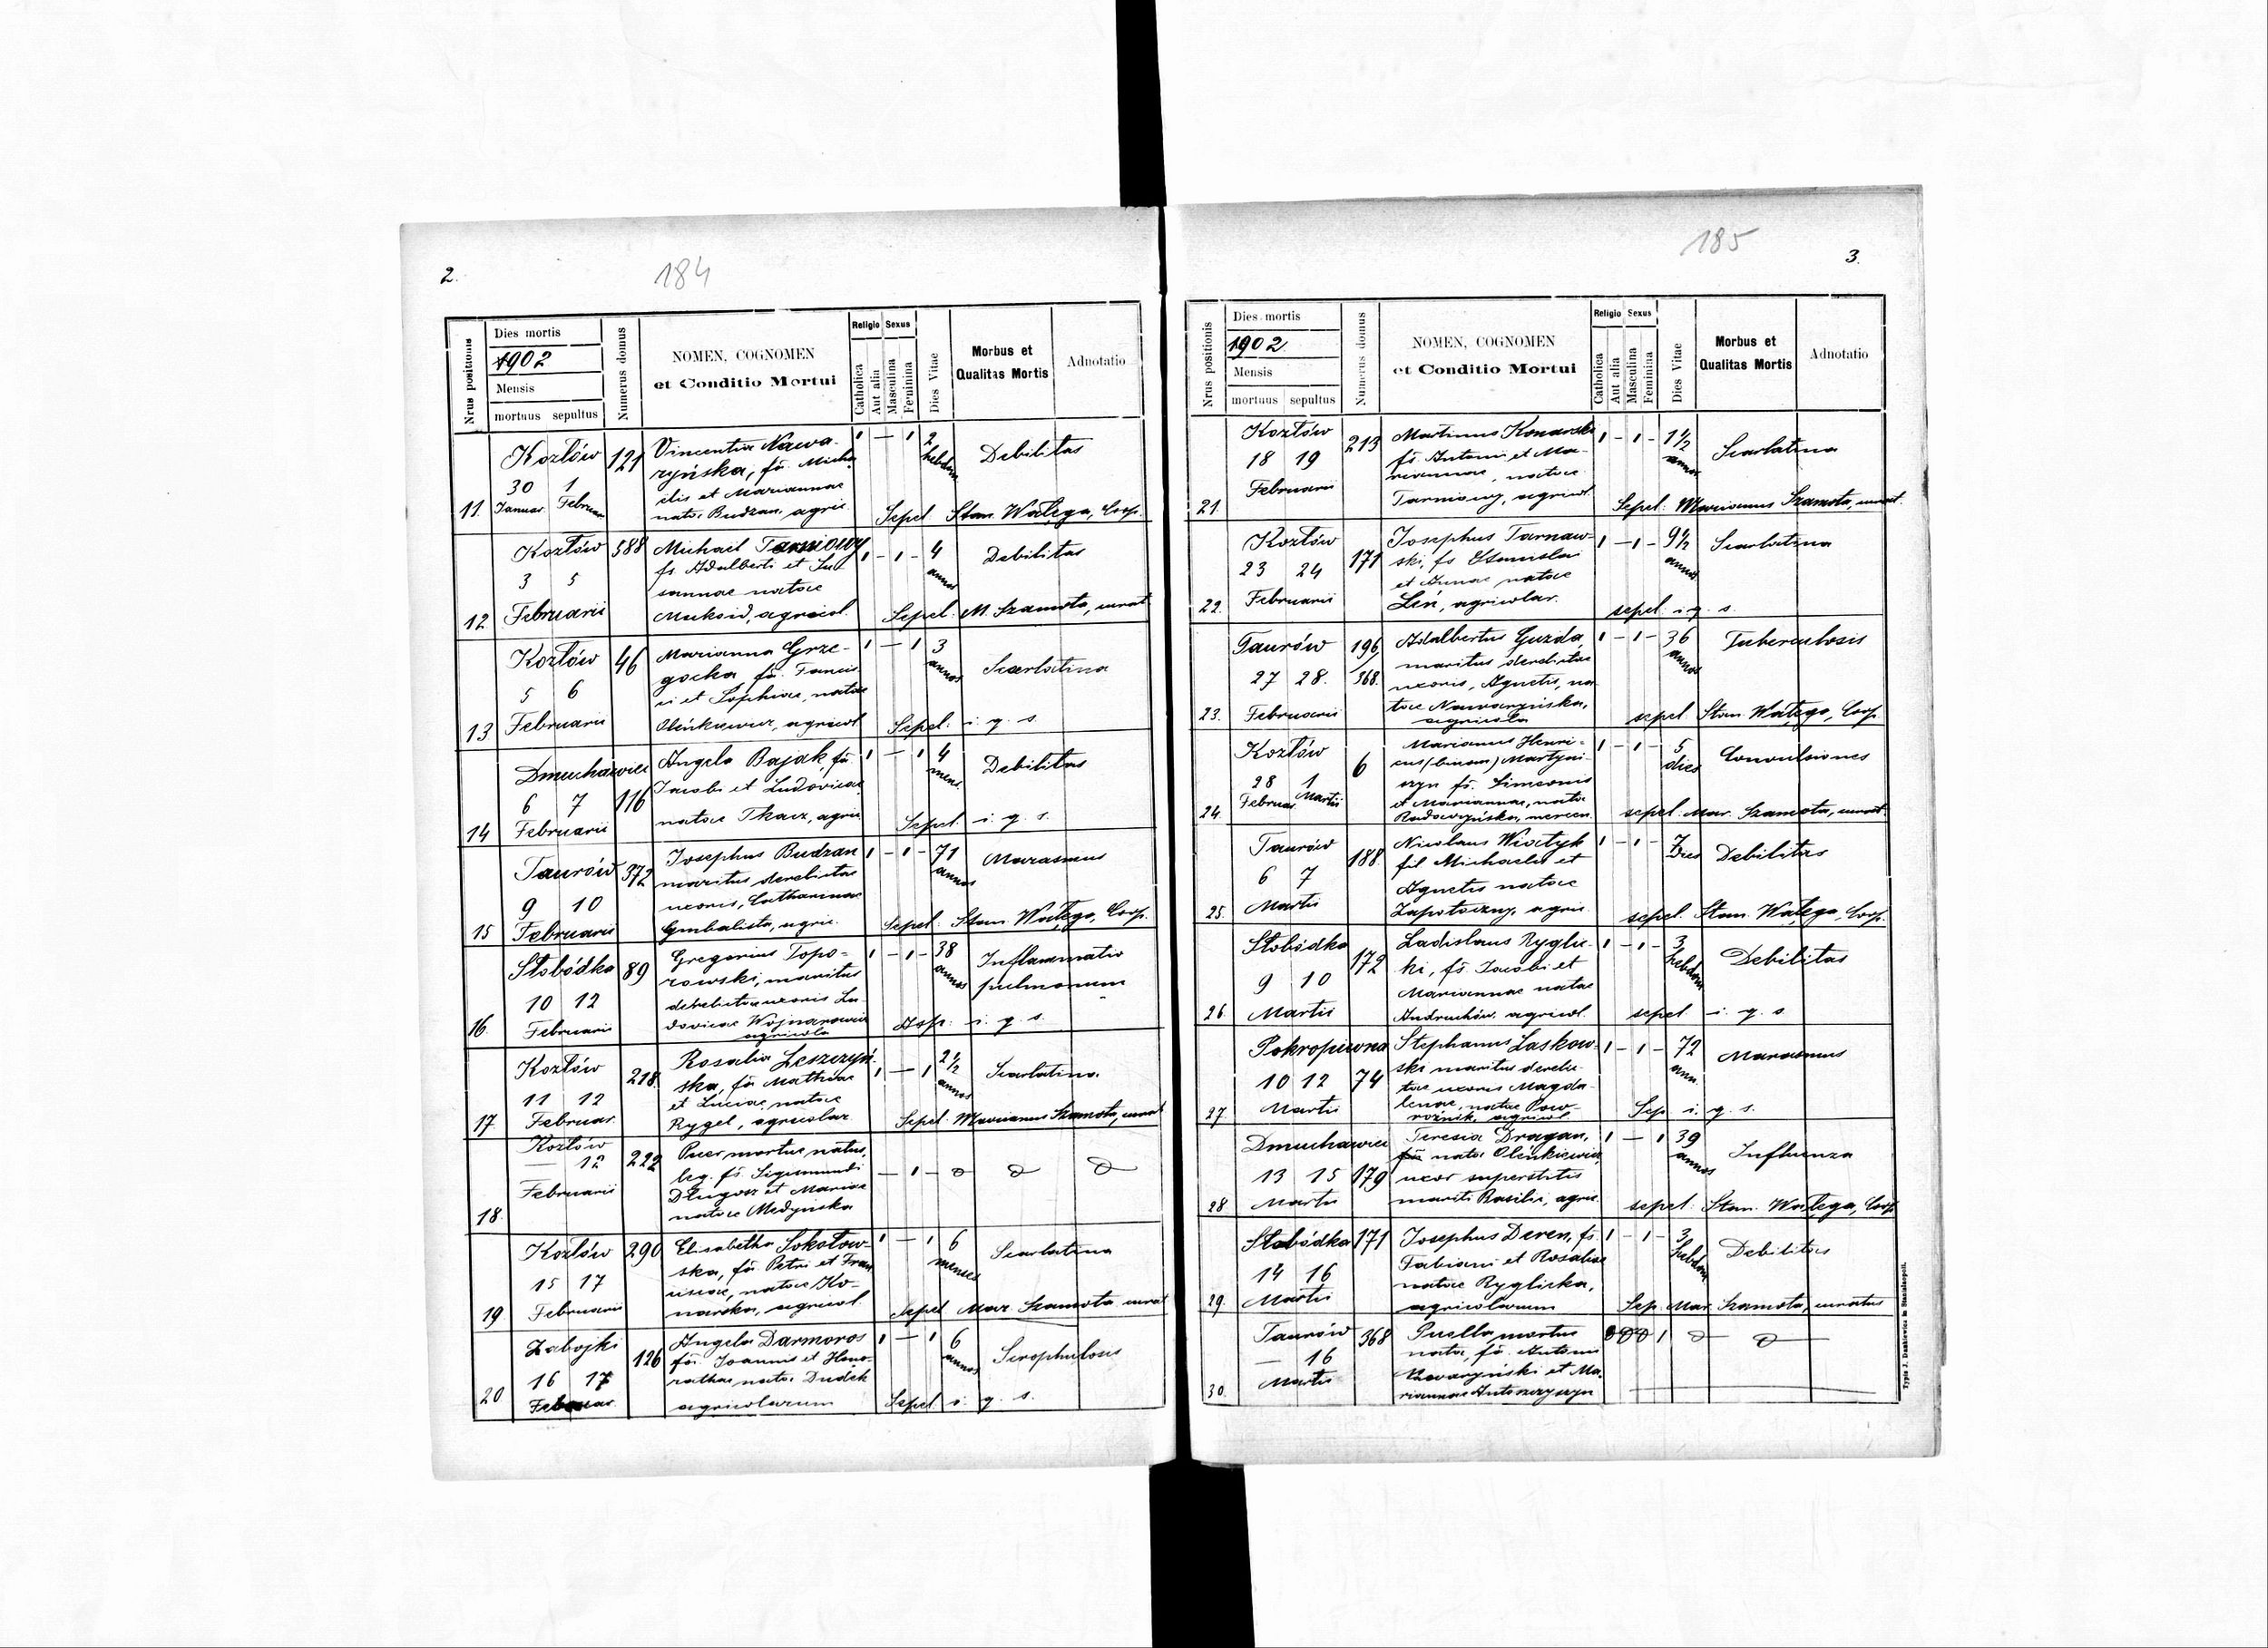 2.
184
Nrus positionis
Dies mortis
1902
Mensis
mortuus sepultus
Numerus domus
NOMEN, COGNOMEN
et Conditio Mortui
Religio Sexus
Catholica
Aut alia
Masculina
Feminina
Dies Vitae
Morbus et
Qualitas Mortis
Adnotatio
Kozłów 121 Vincentia Nawa- 1 — 1 2 Debilitas
ryńska, fa. Micha- hebdom
30 1 elis et Mariannae
11. Januar. Februar natae Budzan, agric. Sepel Stan. Wałęga, Coop.
Kozłów 588 Michael Tarniowy 1 - 1 - 4 Debilitas
3 5 fs Adalberti et Su annos
sannae natae
12 Februarii Muksid, agricol. Sepel: M. Szamota, curat
Kozłów 46 Marianna Grze- 1 — 1 3 Scarlatina
gocka, fa. Francis annos
5 6 ci et Sophiae, natae
13 Februarii Oleńkiewicz, agricol Sepel: i. q. s.
Dmuchawiec Angela Bajak, fa. 1 — 1 4 Debilitas
6 7 116 Jacobi et Ludovicae mens.
14 Februarii natae Tkacz, agric Sepel. i. q. s.
Taurów 372 Josephus Budzan 1 - 1 - 71 Marasmus
maritus derelictae annos
9 10 uxoris, Catharinae
15 Februarii Gmbalista, agric. Sepel: Stan. Wałęga, Coop.
Słobódka 89 Gregorius Topo- 1 - 1 - 38 Inflammatio
rowski, maritus annos pulmonum
10 12 derelictae uxoris Lu-
16. Februarii dovicae Wojnarowicz i. q. s.
agricola
Kozłów 218 Rosalia Leszczyń- 1 — 1 2½ Scarlatina
ska, fa Mathiae annos
11 12 et Luciae, natae
17 Februar. Rygel, agricolar. Sepel. Marianus Szamota, curat
Kozłów 222 Puer mortue natus,
— 12 leg. fs. Sigismundi — 1 —
Februarii Długosz et Mariae
18. natae Medyńska
Kozłów 290 Elisabetha Sokołow- 1 — 1 6 Scarlatina
ska, fa. Petri et Fran menses
15 17 ciscae, natae Ko-
19. Februarii narska, agricol Sepel Mar. Szamota curat
Zabojki 126 Angela Darmoros 1 — 1 6 Scrophulosis
fa. Joannis et Hono- annos
16 17 rathae, natae Dudek
20 Februar. agricolarum Sepel i. q. s.
185
3.
Nrus positionis
Dies mortis
1902
Mensis
mortuus sepultus
Numerus domus
NOMEN, COGNOMEN
et Conditio Mortui
Religio Sexus
Catholica
Aut alia
Masculina
Feminina
Dies Vitae
Morbus et
Qualitas Mortis
Adnotatio
Kozłów 213 Martinus Konarski 1 - 1 - 1½ Scarlatina
18 19 fs. Antoni et Ma- annos
Februarii riannae, natae
21. Tarniowy, agricol. Sepel: Marianus Szamota, curat.
Kozłów 171 Josephus Tarnaw- 1 — 1 - 9½ Scarlatina
23 24 ski, fs Stanislai annos
et Annae natae
22. Februarii Leń, agricolar. sepel i. q. s.
Taurów 196/368 Adalbertus Guzda, 1 - 1 - 36 Tuberculosis
27 28. maritus derelictae annos
uxoris, Agnetis, na
23. Februarii tae Nawaryńska, sepel Stan. Wałęga, Coop.
agricola
Kozłów 6 Marianus Henri- 1 - 1 - 5 Convulsiones
cus (binom) Martyni- dies
28 1 szyn fs. Simeonis
24. Februar. Martii et Mariannae, natae sepel. Mar. Szamota, curat
Taurów 188 Nicolaus Wiotyk 1 - 1 - Debilitas
6 7 fil Michaelis et
Agnetis natae
25. Martii Zapotoczny, agric. sepel. Stan. Wałęga, Coop.
Słobódka 172 Ladislaus Ryglic- 1 - 1 - 3 Debilitas
9 10 ki, fs. Jacobi et hebdom
Mariannae natae
26. Martii Andruchów, agricol. sepel i. q. s.
Pokropiwna 74 Stephanus Laskow- 1 - 1 - 72 Marasmus
10 12 ski maritus derelic- ann.
tae uxoris Magda-
27. Martii lenae, natae Pow- Sep. i. q. s.
roźnik, agricol
Dmuchawiec Teresia Dragan, 1 — 1 39 Influenza
13 15 179 nata Oleńkiewicz, annos
uxor superstitis
28. Martii mariti Basilii, agric. sepel: Stan. Wałęga, Coop
Słobódka 171 Josephus Deren, fs. 1 - 1 - 3 Debilitas
14 16 Fabiani et Rosaliae hebdom
natae Ryglicka,
29. Martii agricolarum Sep. Mar. Szamota, curatus
Taurów 368 Puella mortue 1
— 16 nata, fa. Antoni
30. Martii et Ma-
riannae Antoszczyszyn
Typis J. Dankiewicz in Stanislaopoli.